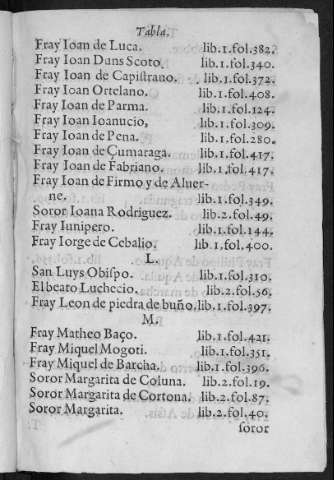 Tabla.
Fray Ioan de Luca. lib.1.fol.382.
Fray Ioan Duns Scoto. lib.1.fol.340.
Fray Ioan de Capiſtrano. lib.1.fol.372.
Fray Ioan Ortelano. lib.1.fol.408.
Fray Ioan de Parma. lib.1.fol.124.
Fray Ioan Ioanucio, lib.1.fol.309.
Fray Ioan de Pena. lib.1.fol.280.
Fray Ioan de Çumaraga. lib.1.fol.417.
Fray Ioan de Fabriano. lib.1,fol.417.
Fray Ioan de Firmo y de Aluer-
ne. lib.1.fol.349.
Soror Ioana Rodriguez. lib.2.fol.49.
Fray Iunipero. lib.1.fol.144.
Fray Iorge de Cebalio. lib.1.fol.400.
L.
San Luys Obiſpo. lib.1.fol.310.
El beato Luchecio. lib.2.fol.56.
Fray Leon de piedra de buño. lib.1.fol.397.
M.
Fray Matheo Baço. lib.1.fol.421.
Fray Miquel Mogoti. lib.1.fol.351.
Fray Miquel de Barcha. lib.1.fol.396.
Soror Margarita de Coluna. lib.2.fol.19.
Soror Margarita de Cortona. lib.2.fol.87.
Soror Margarita. lib.2.fol.40.
ſoror